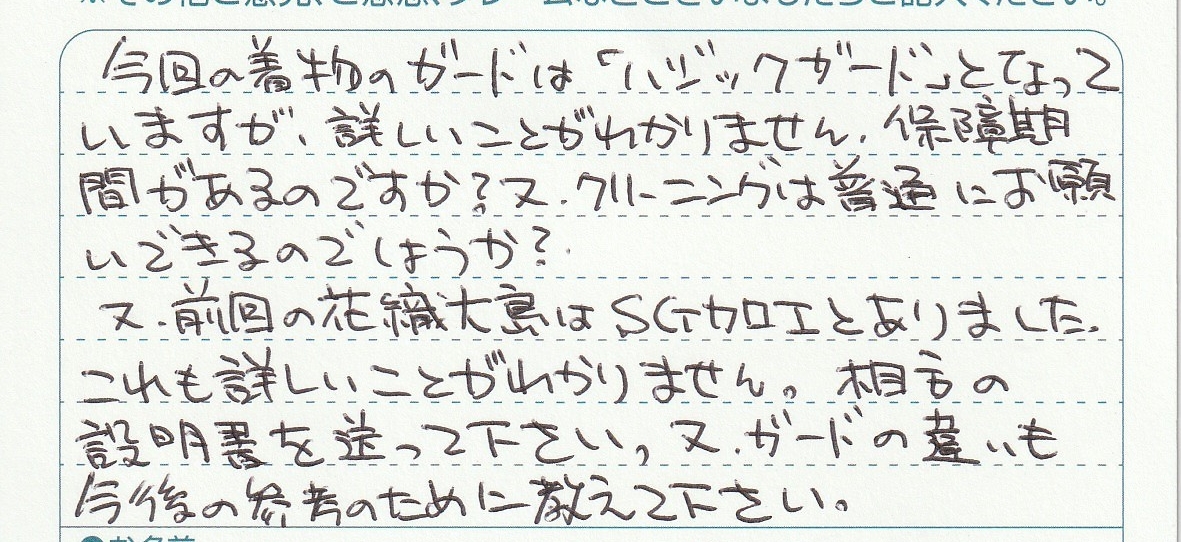 今回の着物のガードは「ハジックガード」となって
いますが、詳しいことがわかりません。保障期
間があるのですか?又、クリーニングは普通にお願
いできるのでしょうか?
又、前回の花織大島はSG加工とありました。
これも詳しいことがわかりません。相方の
説明書を送って下さい。又、ガードの違いも
今後の参考のために教えて下さい。